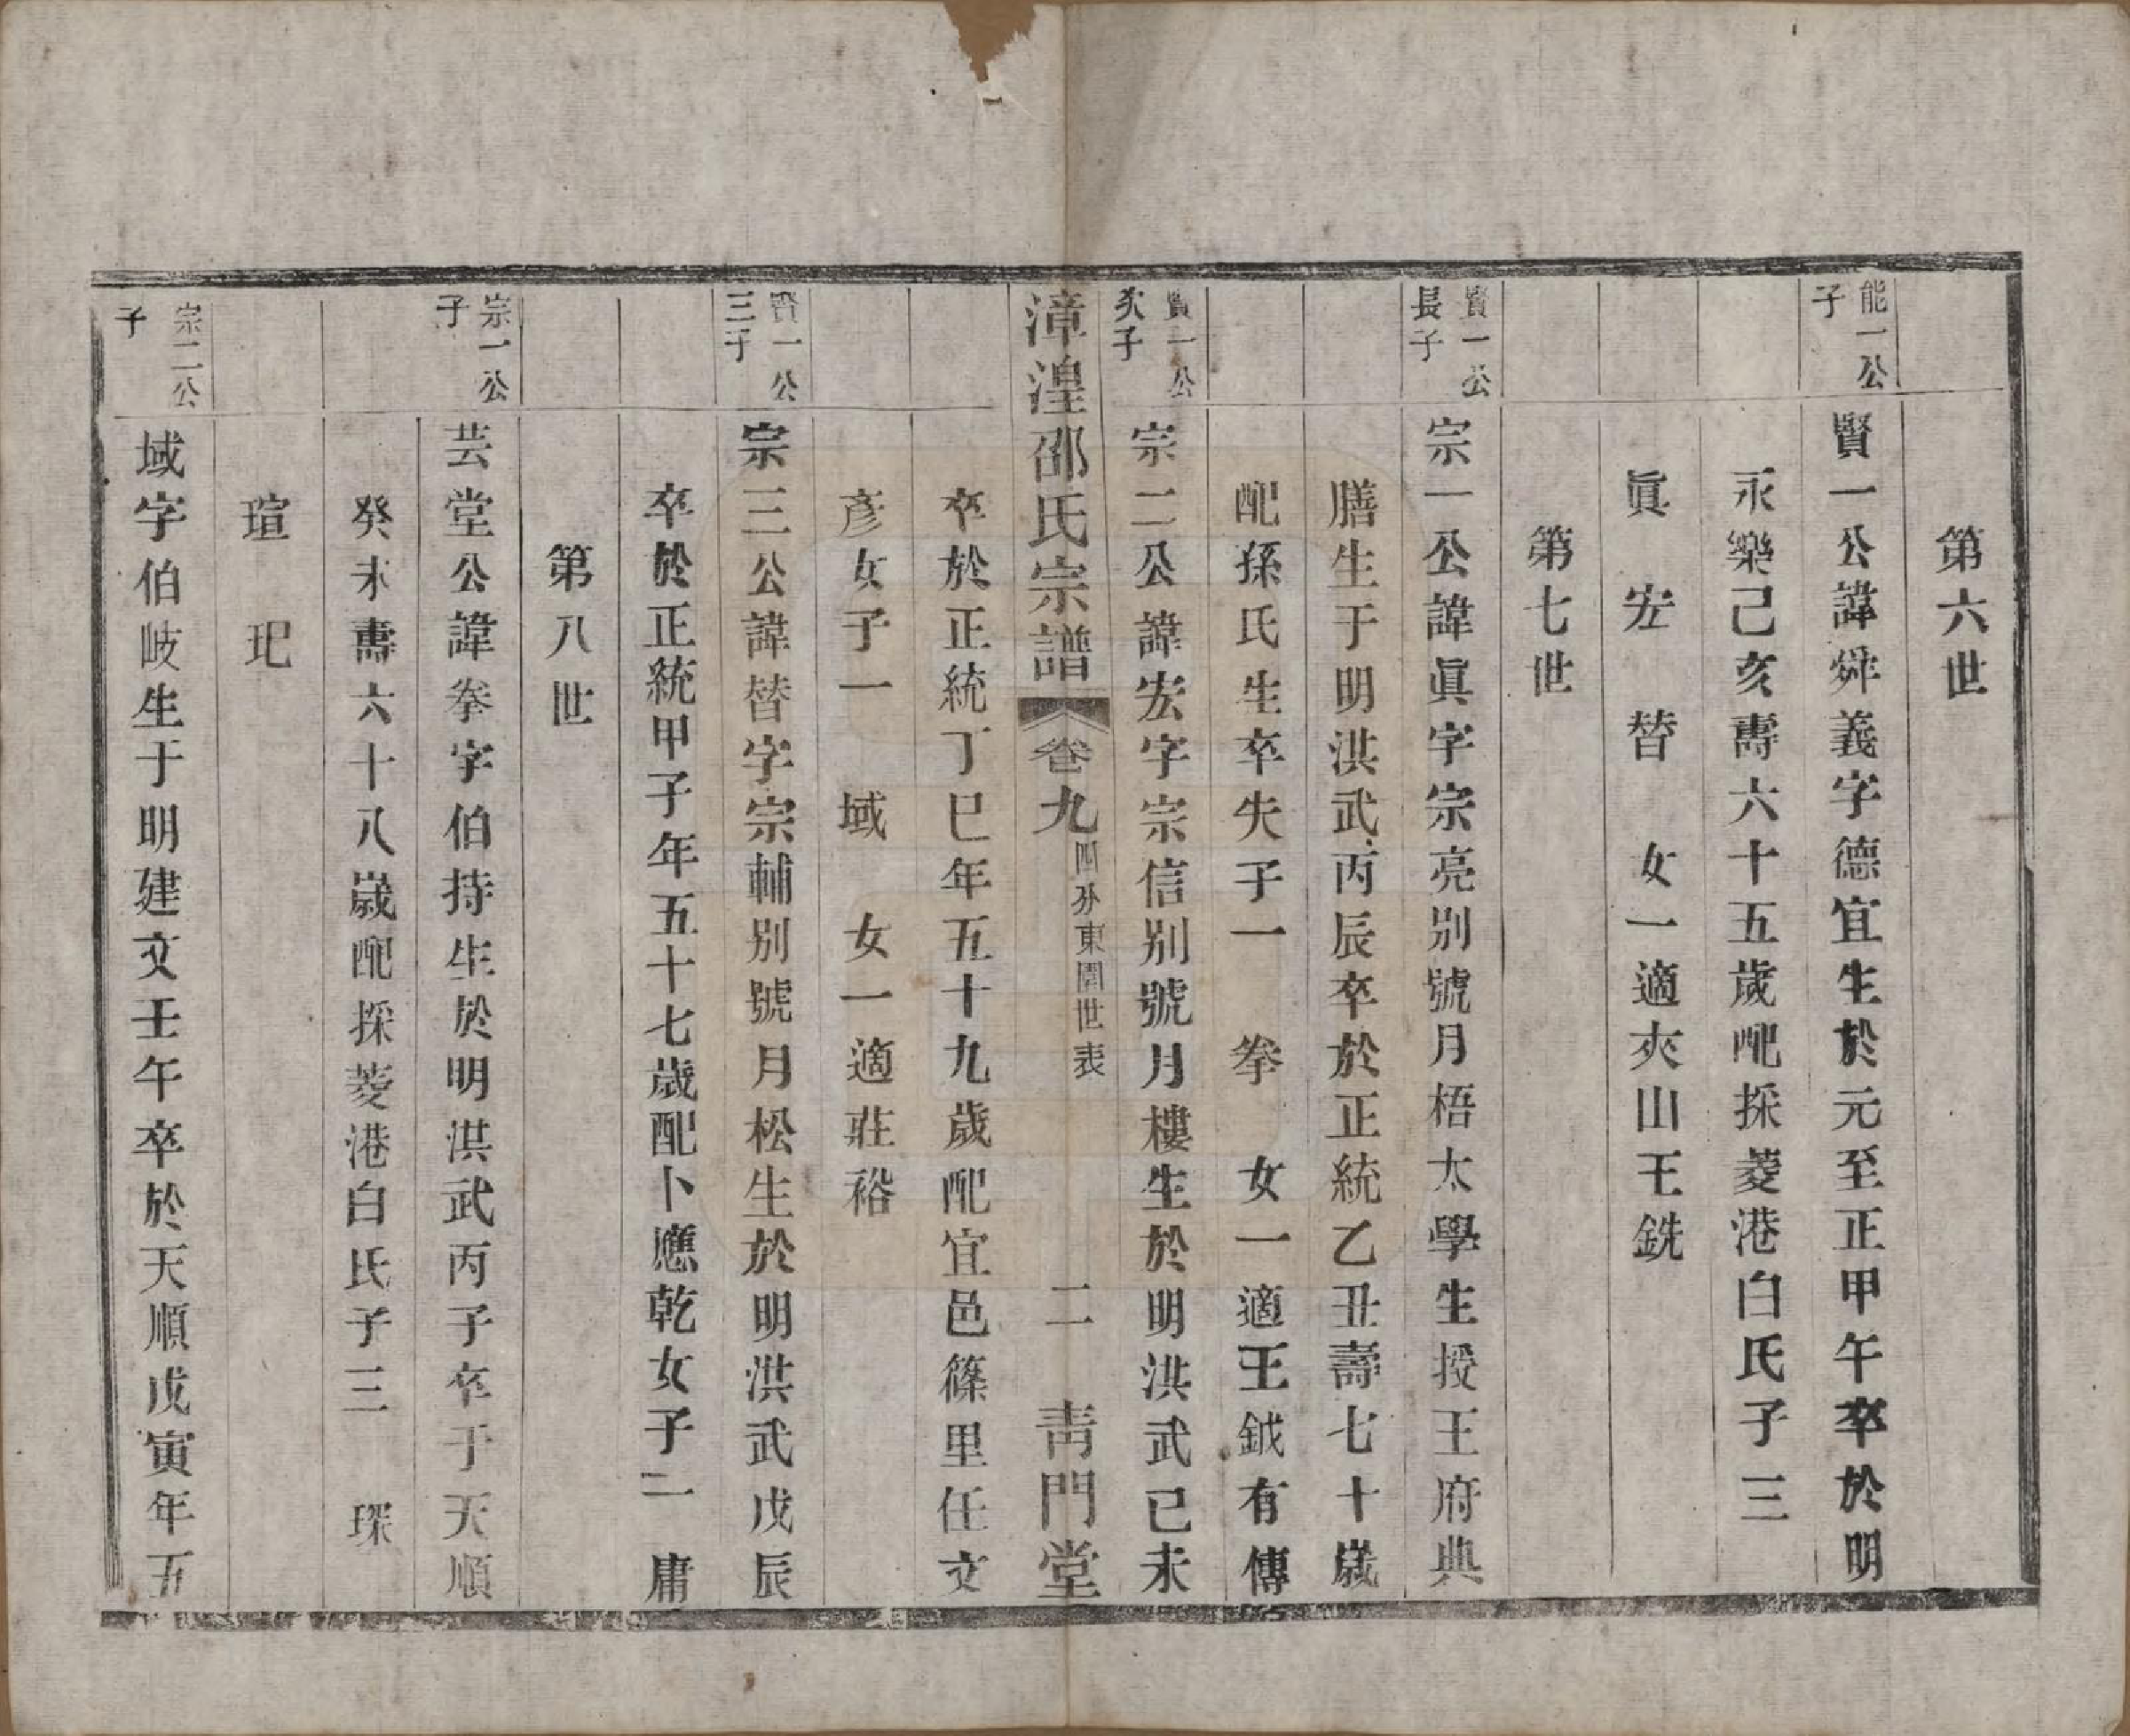 第六世
能一公子
賢一公諱舜義字德宜生於元至正甲午卒於明
永樂己亥壽六十五歲配採菱港白氏子三
眞 宏 替 女一適夾山王銑
第七世
賢一公長子
宗一公諱眞字宗亮別號月梧太學生授王府典
膳生于明洪武丙辰卒於正統乙丑壽七十歲
配孫氏生卒失子一 拳 女一適王鉞有傳
賢一公次子
宗二公諱宏字宗信別號月樓生於明洪武己未
漳湟邵氏宗譜 卷九 四分東園世表 二 靑門堂
卒於正統丁巳年五十九歲配宜邑篠里任文
彥女子一 域 女一適莊裕
賢一公三子
宗三公諱替字宗輔別號月松生於明洪武戊辰
卒於正統甲子年五十七歲配卜應乾女子二 庸
第八世
宗一公子
芸堂公諱拳字伯持生於明洪武丙子卒于天順
癸未壽六十八歲配採菱港白氏子三 琛
瑄 玘
宗二公子
域字伯岐生于明建文壬午卒於天順戊寅年五